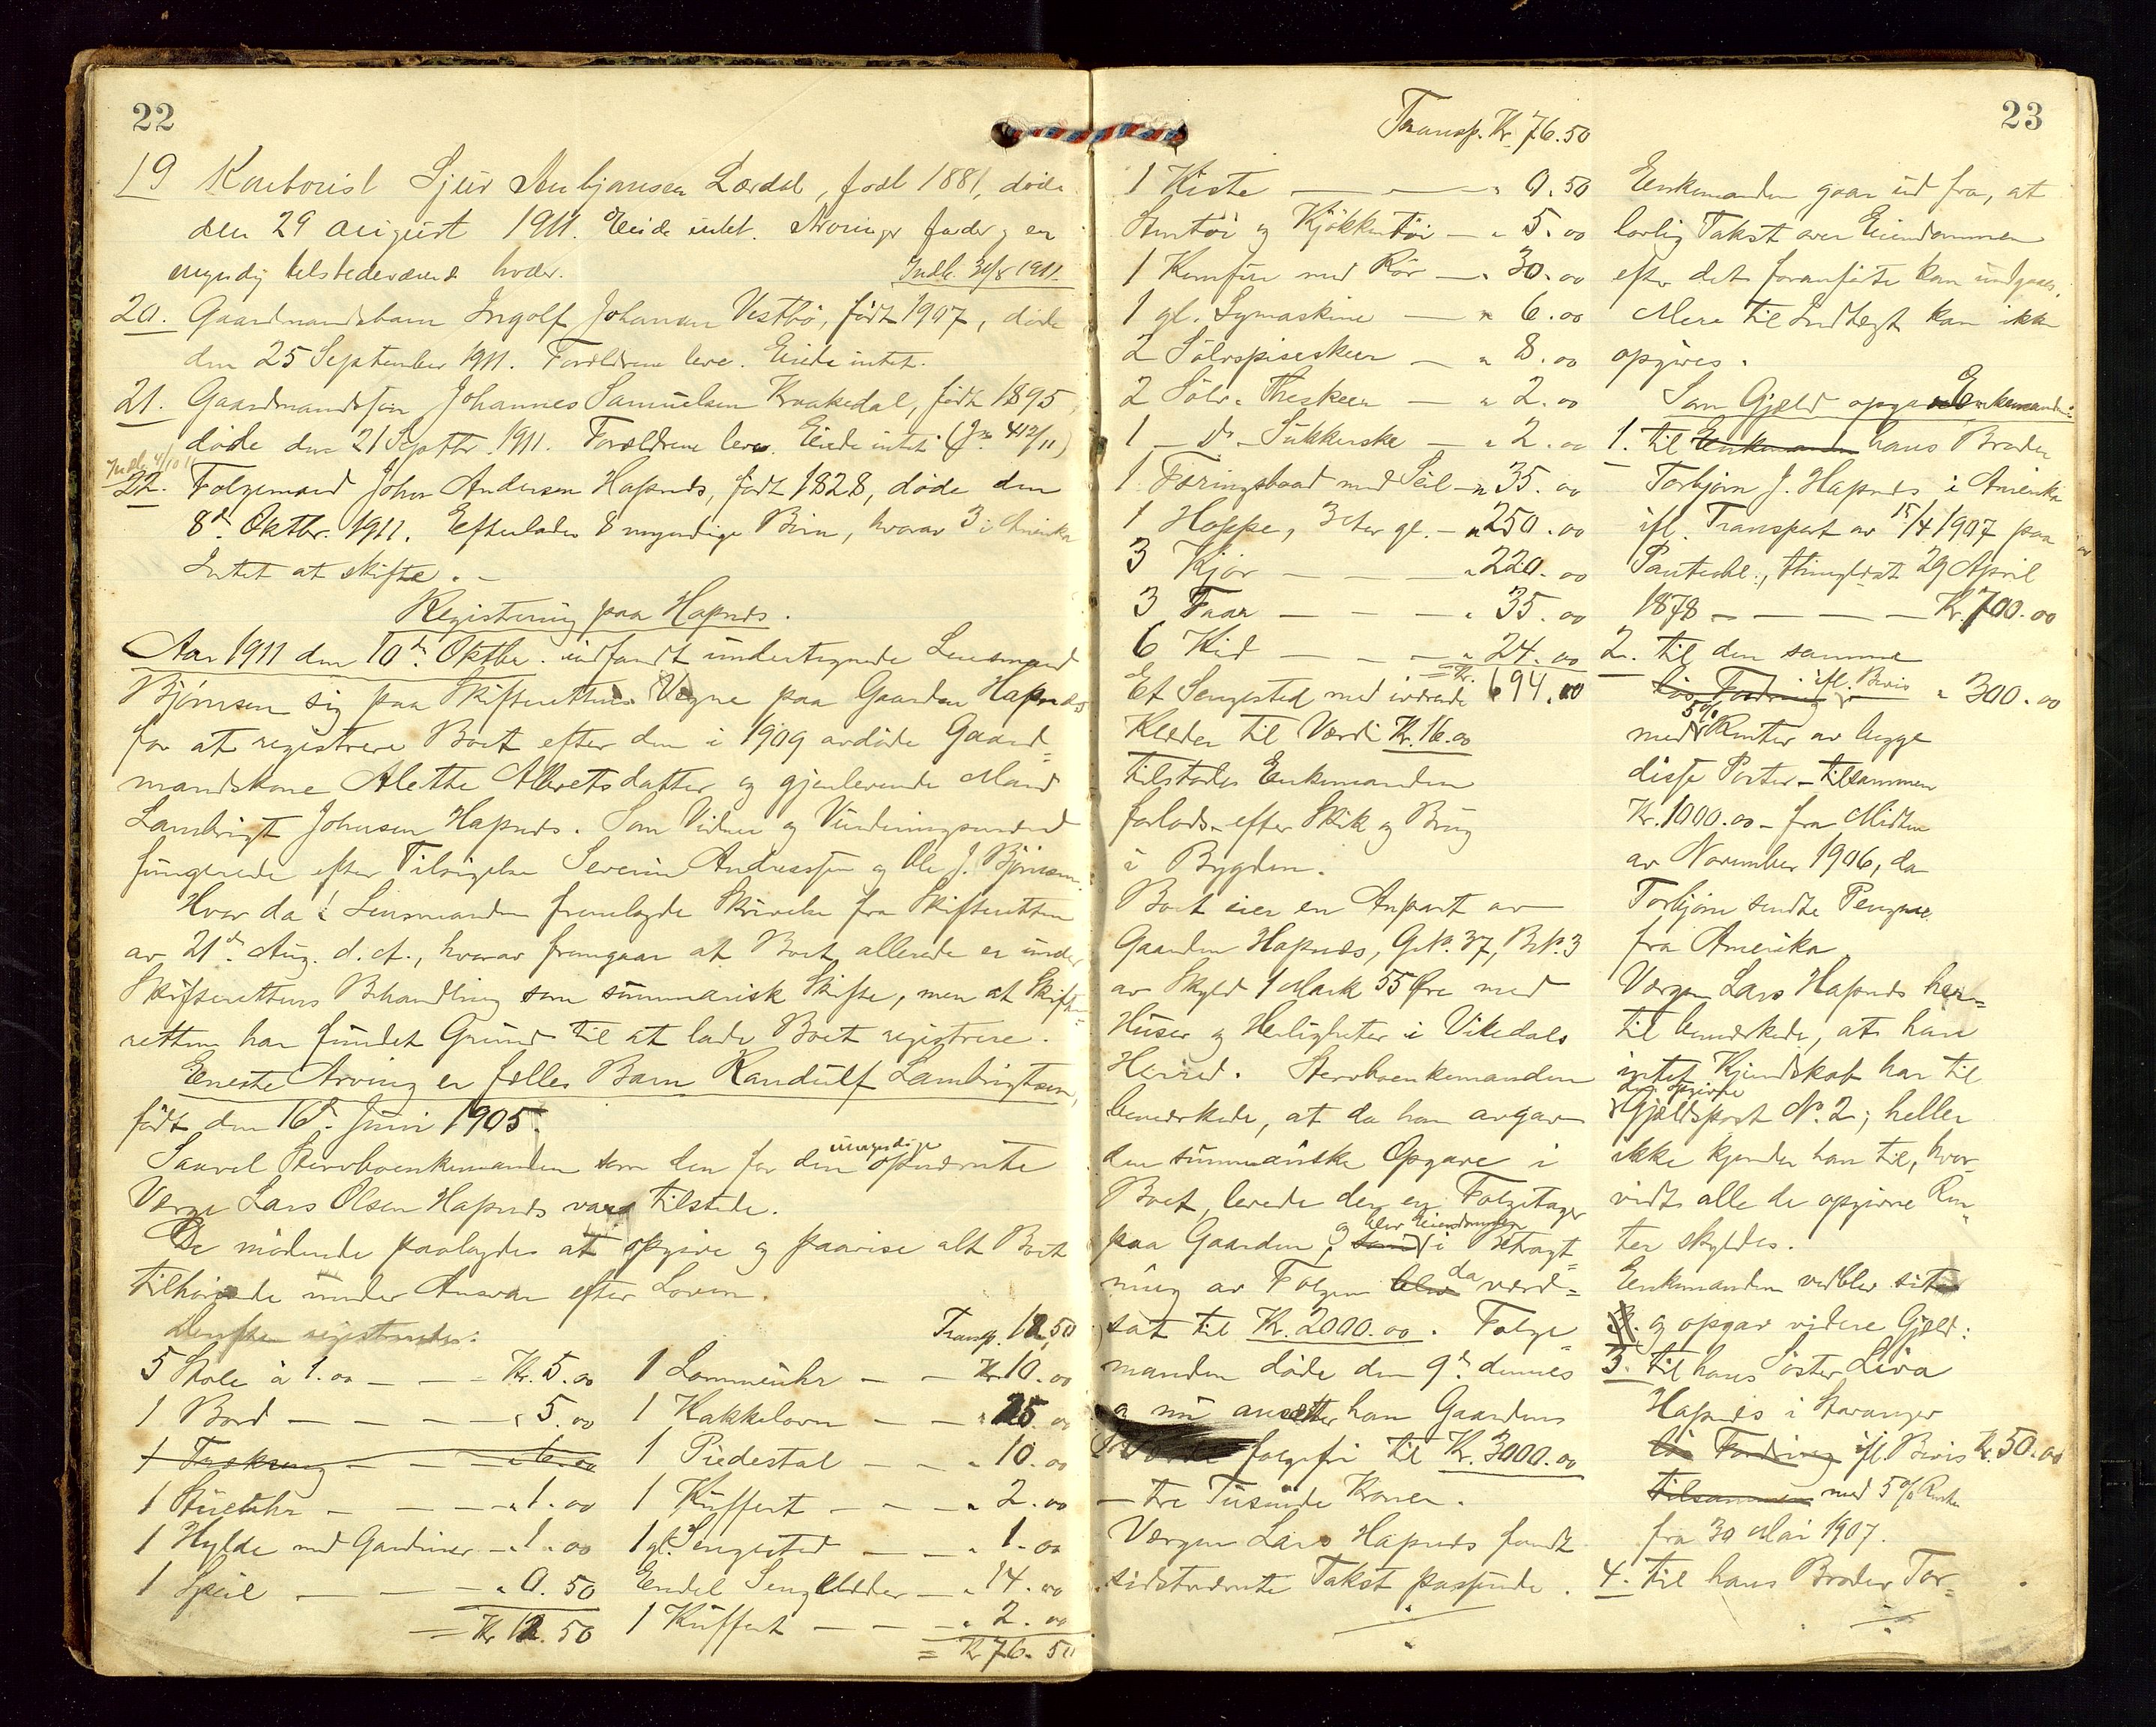 22
19 Kontorist Sjur Lærdal, født 1881, døde
den 29 august 1911. Eiede intet. Arvinger fader og en
myndig tilstedeværende broder. Indb. 30/8 1911.
20. Gaardmandsbarn Ingolf Johansen Vestbø, født 1907, døde
den 25 September 1911. Forældrene leve. Eiede intet.
21. Gaardmandssøn Johannes Samuelsen Kvakedal, født 1895
døde den 21 Septbr. 1911. Forældrene leve. Eiede intet (J.No 412/11)
Indb. 4/10 11
22. Folgemand John Andersen Hapnæs, født 1828, døde den
8de Oktbr. 1911. Efterlader 8 myndige Børn, hvorav 3 i Amerika
Intet at skifte. -
Registrering paa Hapnæs.
Aar 1911 den 10de Oktbr. indfandt undertegnede Lensmand
Bjørnsen sig paa Skifterettens Vegne paa Gaarden Hapnæs
for at registrere Boet efter den i 1909 avdøde Gaard-
mandskone Alette Albretsdatter og gjenlevende Mand
Lambrigt Johnsen Hapnæs. Som Vidner og Vurderingsmænd
fungerede efter Tilsigelse Severin Andreassen og Ole J. Bjørnsen.
Hvor da: Lensmanden fremlagde Skrivelse fra Skifteretten
av 21de Aug. d. A., hvorav fremgaar at Boet allerede er under
Skifterettens Behandling som summarisk Skifte, men at Skifte-
retten har fundet Grund til at lade Boet registrere.
Eneste Arving er fælles Barn Randulf Lambrigtsen,
født den 16de Juni 1905.
Saavel Stervboenkemanden som den for den umyndige opnævnte
Verge Lars Olsen Hapnæs var tilstede.
De mødende paalagdes at opgive og paavise alt Boet
tilhørende under Ansvar efter Loven.
Derefter registreredes:
5 Stole à 1.00 — Kr. 5.00
1 Bord — " 5.00
1 — " 6.00
1 Stueuhr — " 1.00
1 Hylde med Gardiner — " 1.00
1 Speil — " 0.50
= Kr 12.50
Transp. 12,50
1 Lommeuhr — Kr. 10.00
1 Kakkelovn — " 25.00
1 Piedestal — " 10.00
1 Kuffert — " 2.00
1 gl. Sengested — " 1.00
Endel Sengklæder — " 14.00
1 Kuffert — " 2.00
= Kr 76.50
23
Transp. Kr. 76.50
1 Kiste — " 0.50
Stentøi og Kjøkkentøi — " 5.00
1 Komfur med Rør — " 30.00
1 gl. Symaskine — " 6.00
2 Sølvspiseskeer — " 8.00
2 Sølv-Theskeer — " 2.00
1 — do - Sukkerske — " 2.00
1 Færingsbaad med Seil — " 35.00
1 Hoppe, 3 Aar gl. — " 250.00
3 Kjør — " 220.00
3 Faar — " 35.00
6 Kid — " 24.00
= Kr. 694.00
Et Sengested med iværende
Klæder til Værdi Kr. 16.00
tilstodes Enkemanden
forlods efter Skik og Brug
i Bygden.
Boet eier en Anpart av
Gaarden Hapnæs, G.No. 37, B.No. 3
av Skyld 1 Mark 55 Øre med
Huser og Herligheter i Vikedals
Herred. Stervboenkemanden
bemærkede, at da han avgav
den summariske Opgave i
Boet, levede der en Folgetager
paa Gaarden, og blev Eiendommen i Betragt-
ning av Folgen da værd-
sat til Kr. 2000.00. Folge-
manden døde den 9de dennes
og nu ansætter han Gaardens
folgefri til Kr. 3000.00
— tre Tusinde Kroner.
Vergen Lars Hapnæs fandt
sidstnævnte Takst passende.
Enkemanden gaar ud fra, at
lovlig Takst over Eiendommen
efter det foranførte kan undgaaes.
Mere til Indtægt kan ikke
opgives.
Som Gjæld opgav Enkemanden:
1. til Enkemanden hans Broder
Torbjørn J. Hapnæs i Amerika
ifl. Transport av 15/4 1907 paa
Panteobl., thinglæst 29 April
1878 — Kr. 700.00
2. til den samme
løs Fordring ifl. Bevis " 300.00
med 5% Renter av begge
disse Poster - tilsammen
Kr. 1000.00 - fra Midten
av November 1906, da
Torbjørn sendte Pengene
fra Amerika.
Vergen Lars Hapnæs her-
til bemærkede, at han
intet Kjendskab har til
den opgivne Gjældspost No. 2; heller
ikke kjender han til, hvor-
vidt alle de opgivne Ren-
ter skyldes.
Enkemanden vedblev sit
3. og opgav videre Gjæld:
3. til hans Søster Liva
Hapnæs i Stavanger
løs Fordring ifl. Bevis Kr. 50.00
tilsammen med 5% Rente
fra 30 Mai 1907.
4. til hans Broder Tor-